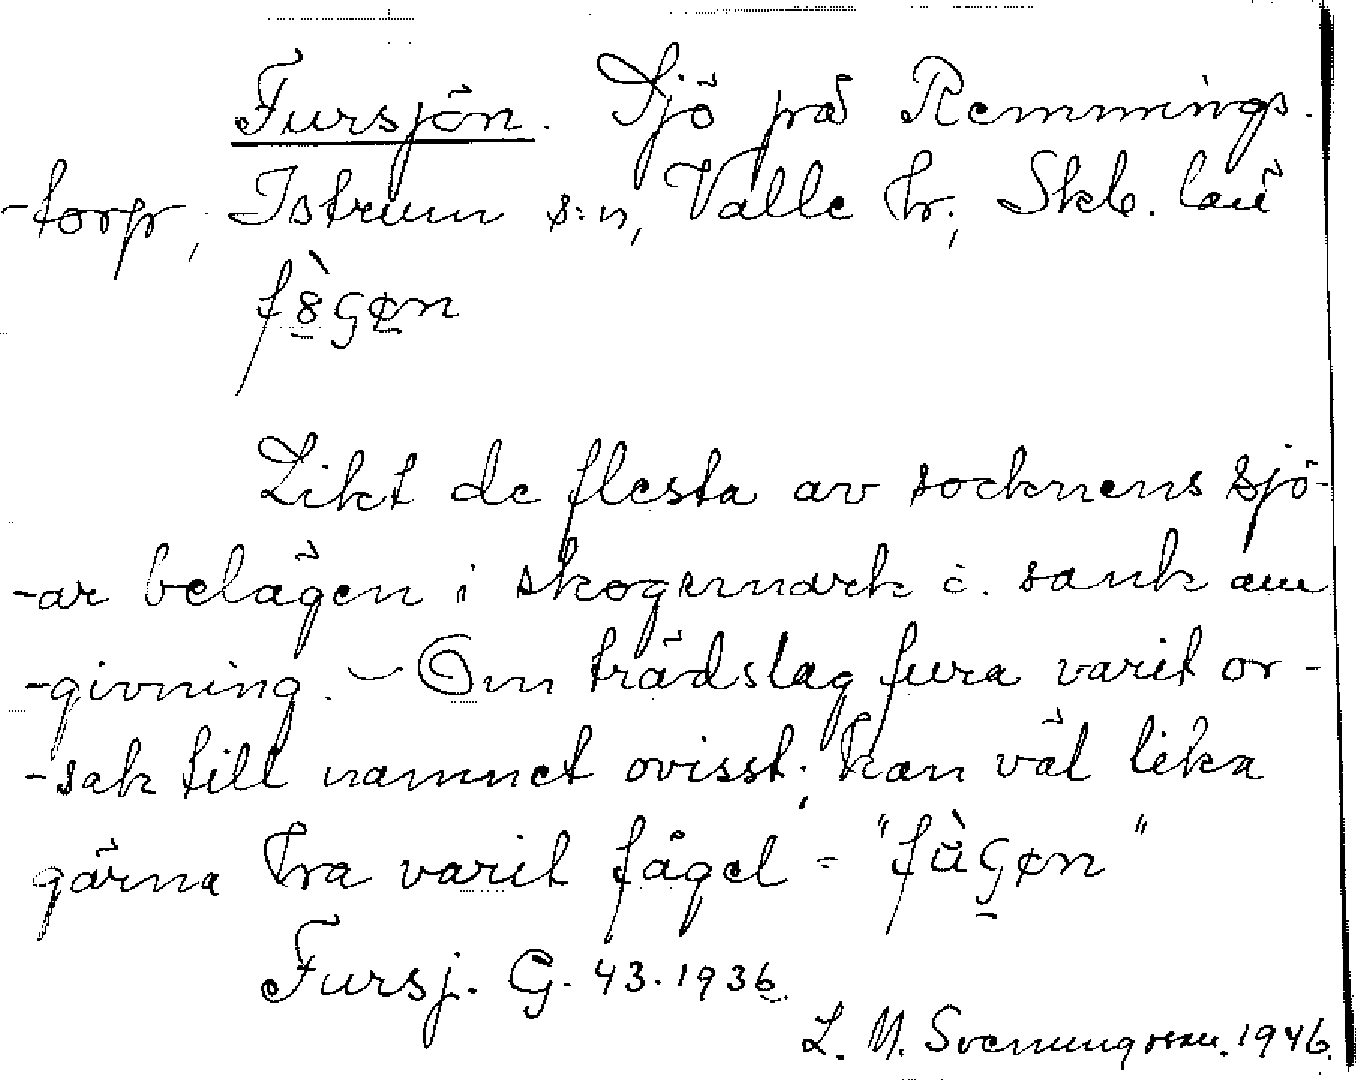 Fursjön. Sjö på Remmings-
-torp, Istrum s:n, Valle hr, Skb. län
Likt de flesta av socknens sjö-
-ar belägen i skogsmark o. sank om
-givning. - Om trädslag fura varit or-
-sak till namnet ovisst; kan väl lika
gärna ha varit fågel = "
Fursj. G. 43. 1936
L. M. Svenungsson. 1946.